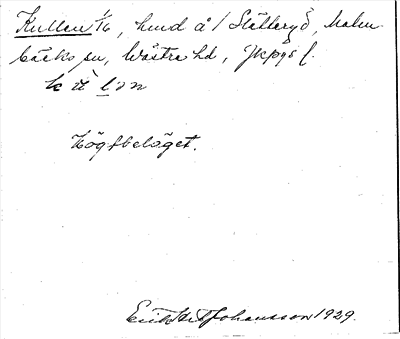 Kullen 1/6, hmd å / Slätteryd, Malm
bäcks sn, Västra hd, Jkpgs l.
kɷ̀lən
Högt beläget.
Erik Johansson 1929.